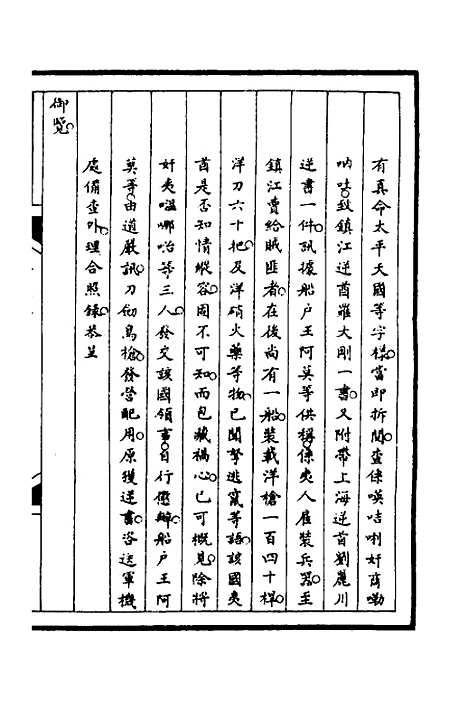 有真命太平天國等字樣當即拆閱查係㗸咭唎奸商嘞
吶吐致鎮江逆酋羅大剛一書又附帶上海逆首劉麗川
逆書一件訊據船户王阿莫等供稱係夷人雇裝兵器至
鎮江賣給賊匪者在後尚有一船裝載洋槍一百四十桿
洋刀六十把及洋硝火藥等物已聞拏逃竄等語該國夷
酋是否知情縱容固不可知而包藏禍心已可概見除將
奸夷嗢哪哈等三人發交該國領事自行懲辦船户王阿
莫等由道嚴訊刀劍鳥槍發營配用原獲逆書咨送軍機
處備查外理合照錄恭呈
御覽